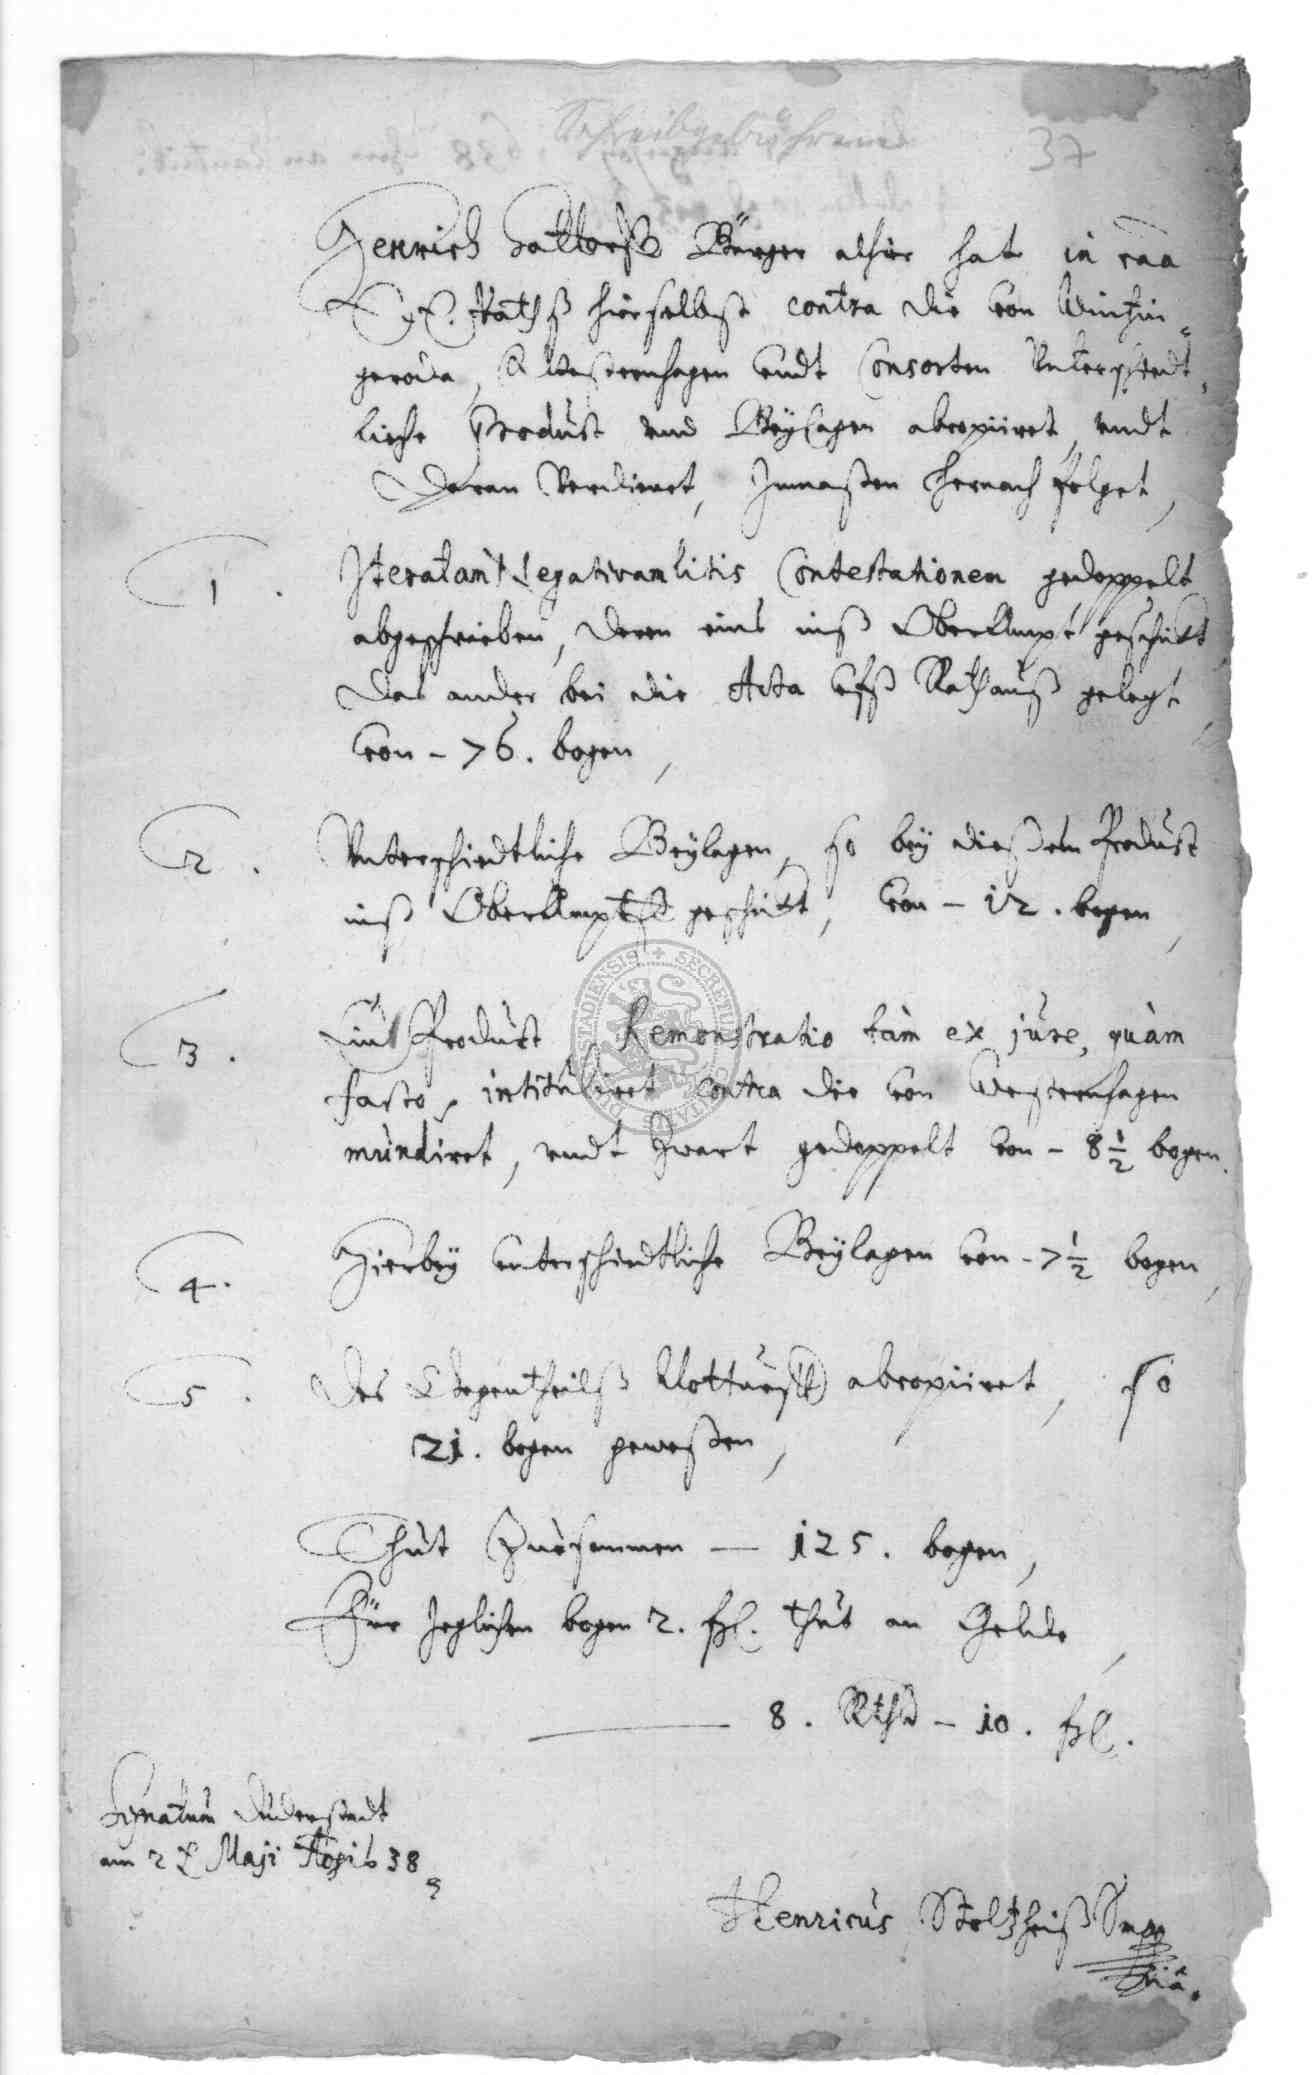 Schreibgebühren
37
Henrich Hattorff Bürger alhier hat in caã
E. E. Raths hierselbst contra die von Wintzin=
geroda, Westernhagen vndt Consorten Vnterschiedt=
liche Product vnd Beylagen abcopiiret, vndt
daran Verdienet, Inmaßen hernach folget,
1. Iteratam Negativam Litis Contestationem gedoppelt
abgeschrieben, deren eins inß OberAmpt geschickt
das ander bei die Acta vfß Rathauß gelegt
von - 76. bogen,
2. Vnterschiedtliche Beylagen, so bey dießem Product
inß OberAmpt geschickt, von - 12. bogen,
3. Ein Product, Remonstratio tàm ex jure, quàm
facto, intituliret contra die von Westernhagen
mundiret, vndt Zwart gedoppelt von - 8 1/2 bogen.
4. Hierbey vnterschiedtliche Beylagen von - 7 1/2 bogen,
5. Des Gegentheilß abcopiiret, so
21. bogen geweßen,
Thut Zusammen — 125. bogen,
Für Jeglichen bogen 2. ßl. thut an Gelde,
8. Rthlr - 10. ßl.
Signatum Duderstadt
am Maji 38
Henricus Stoltzheiß
SECRETUM CIVITATIS DUDERSTADIENSIS